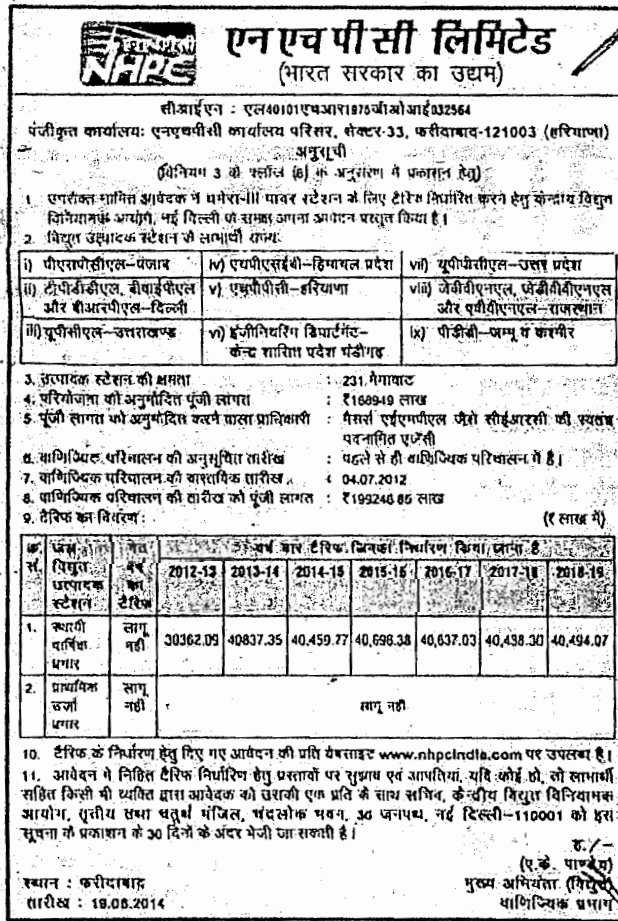 एनएचपीसी
NHPC
एन एच पी सी लिमिटेड
(भारत सरकार का उद्यम)
सीआईएन : एल40101एचआर1975जीओआई032564
पंजीकृत कार्यालयः एनएचपीसी कार्यालय परिसर, सेक्टर-33, फरीदाबाद-121003 (हरियाणा)
अनुसूची
(विनियम 3 के क्लॉज (6) के अनुसरण में प्रकाशन हेतु)
1. उपरोक्त नामित आवेदक ने चमेरा-III पावर स्टेशन के लिए टैरिफ निर्धारित करने हेतु केन्द्रीय विद्युत
विनियामक आयोग, नई दिल्ली के समक्ष अपना आवेदन प्रस्तुत किया है।
2. विद्युत उत्पादक स्टेशन से लाभार्थी राज्यः
i) पीएसपीसीएल–पंजाब iv) एचपीएसईबी–हिमाचल प्रदेश vii) यूपीपीसीएल–उत्तर प्रदेश
ii) टीपीडीडीएल, बीवाईपीएल और बीआरपीएल–दिल्ली v) एचपीपीसी–हरियाणा viii) जेवीवीएनएल, जेडीवीवीएनएल और एवीवीएनएल–राजस्थान
iii) यूपीसीएल–उत्तराखण्ड vi) इंजीनियरिंग डिपार्टमेंट– केन्द्र शासित प्रदेश चंडीगढ़ ix) पीडीडी–जम्मू व कश्मीर
3. उत्पादक स्टेशन की क्षमता : 231 मेगावाट
4. परियोजना की अनुमोदित पूंजी लागत : ₹168949 लाख
5. पूंजी लागत को अनुमोदित करने वाला प्राधिकारी : मैसर्स एईएमपीएल जैसे सीईआरसी की स्वतंत्र
पदनामित एजेंसी
6. वाणिज्यिक परिचालन की अनुसूचित तारीख : पहले से ही वाणिज्यिक परिचालन में है।
7. वाणिज्यिक परिचालन की वास्तविक तारीख : 04.07.2012
8. वाणिज्यिक परिचालन की तारीख को पूंजी लागत : ₹199246.85 लाख
9. टैरिफ का विवरण : (₹ लाख में)
क्र. सं. जल विद्युत उत्पादक स्टेशन गत वर्ष का टैरिफ वर्ष वार टैरिफ जिनका निर्धारण किया जाना है
2012-13 2013-14 2014-15 2015-16 2016-17 2017-18 2018-19
1. स्थायी वार्षिक प्रभार लागू नहीं 30362.09 40837.35 40,459.77 40,698.38 40,637.03 40,438.30 40,494.07
2. प्राथमिक उर्जा प्रभार लागू नहीं लागू नहीं
10. टैरिफ के निर्धारण हेतु दिए गए आवेदन की प्रति वेबसाइट www.nhpcindia.com पर उपलब्ध है।
11. आवेदन में निहित टैरिफ निर्धारिण हेतु प्रस्तावों पर सुझाव एवं आपतियां, यदि कोई हो, तो लाभार्थी
सहित किसी भी व्यक्ति द्वारा आवेदक को उसकी एक प्रति के साथ सचिव, केन्द्रीय विद्युत विनियामक
आयोग, तृतीय तथा चतुर्थ मंजिल, चंद्रलोक भवन, 36 जनपथ, नई दिल्ली–110001 को इस
सूचना के प्रकाशन के 30 दिनों के अंदर भेजी जा सकती है।
ह./-
(ए.के. पाण्डेय)
स्थान : फरीदाबाद मुख्य अभियंता (विद्युत)
तारीख : 19.06.2014 वाणिज्यिक प्रभाग